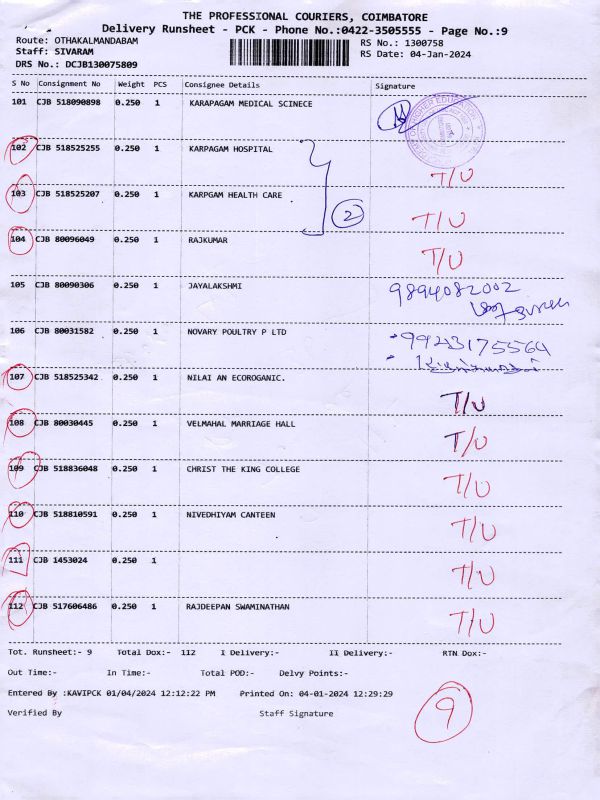 THE PROFESSIONAL COURIERS, COIMBATORE
Delivery Runsheet - PCK - Phone No.:0422-3505555 - Page No.:9
Route: OTHAKALMANDABAM
RS No.: 1300758
Staff: SIVARAM
RS Date: 04-Jan-2024
DRS No.: DCJB130075809
S No Consignment No Weight PCS Consignee Details Signature
101 CJB 518090898 0.250 1 KARAPAGAM MEDICAL SCINECE
102 CJB 518525255 0.250 1 KARPAGAM HOSPITAL T/U
103 CJB 518525207 0.250 1 KARPGAM HEALTH CARE T/U
2
104 CJB 80096049 0.250 1 RAJKUMAR T/U
105 CJB 80090306 0.250 1 JAYALAKSHMI 9894082002
106 CJB 80031582 0.250 1 NOVARY POULTRY P LTD
107 CJB 518525342 0.250 1 NILAI AN ECOROGANIC. T/U
108 CJB 80030445 0.250 1 VELMAHAL MARRIAGE HALL T/U
109 CJB 518836048 0.250 1 CHRIST THE KING COLLEGE T/U
110 CJB 518810591 0.250 1 NIVEDHIYAM CANTEEN T/U
111 CJB 1453024 0.250 1 T/U
112 CJB 517606486 0.250 1 RAJDEEPAN SWAMINATHAN T/U
Tot. Runsheet:- 9 Total Dox:- 112 I Delivery:- II Delivery:- RTN Dox:-
Out Time:- In Time:- Total POD:- Delvy Points:-
Entered By :KAVIPCK 01/04/2024 12:12:22 PM Printed On: 04-01-2024 12:29:29
Verified By Staff Signature
9